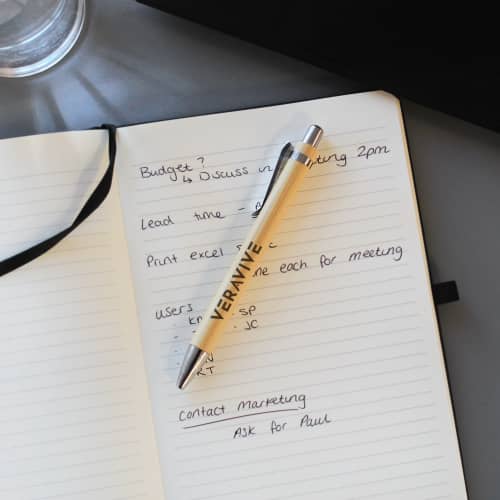 Budget?
↳ Discuss in 2pm
Lead time -
Print excel
each for meeting
users
SP
JC
RT
VERAVIVE
Contact Marketing
Ask for Paul